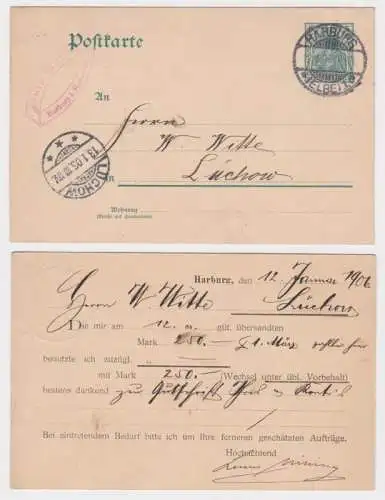 Postkarte
HARBURG
(ELBE)
An
Herrn
W. Witte
in Lüchow
LÜCHOW
13.1.06.
Wohnung
Harburg, den 12. Januar 1906
Herrn W. Witte
Lüchow
Die mir am 12. m. güt. übersandten
Mark 250.— 1. März
benutzte ich zuzügl. „ —
mit Mark 250.— (Wechsel unter übl. Vorbehalt)
bestens dankend zur Gutschrift
Bei eintretendem Bedarf bitte ich um Ihre ferneren geschätzten Aufträge.
Hochachtend